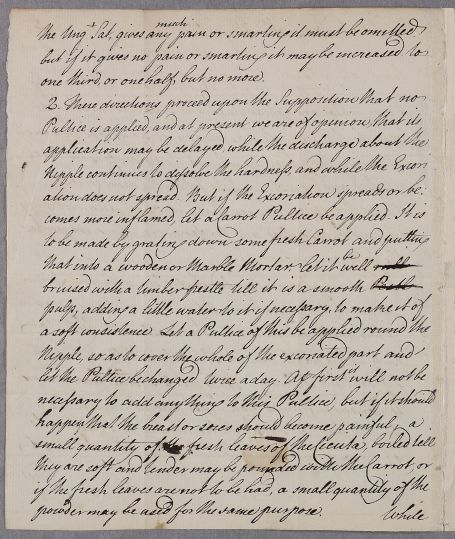 the Ungt Sat, gives any much pain or smarting it must be omitted
but if it gives no pain or smarting it may be increased to
one third, or one half, but no more.
2. These directions proceed upon the Supposition that no
Pultice is applied, and at present we are of opinion, that its
application may be delayed while the discharge about the
Nipple continues to dissolve the hardness, and while the Excori
ation does not spread. But if the Excoriation spreads or be:
comes more inflamed, let a Carrot Pultice be applied. It is
to be made by grating down some fresh Carrot and putting
that into a wooden or Marble Mortar. let it be well
bruised with a timber pestle till it is a smooth
pulp, adding a little water to it if necessary, to make it of
a soft consistence. Let a Pultice of this be applied round the
Nipple, so as to cover the whole of the excoriated part and
let the Pultice be changed twice a day. At first it will not be
necessary to add any thing to this Pultice, but if it should
happen that the breast or sores should become painful, a
small quantity of fresh leaves of the Cicuta, boiled till
they are soft and tender may be pounded with the Carrot, or
if the fresh leaves are not to be had, a small quantity of the
powder may be used for the same purpose.
While